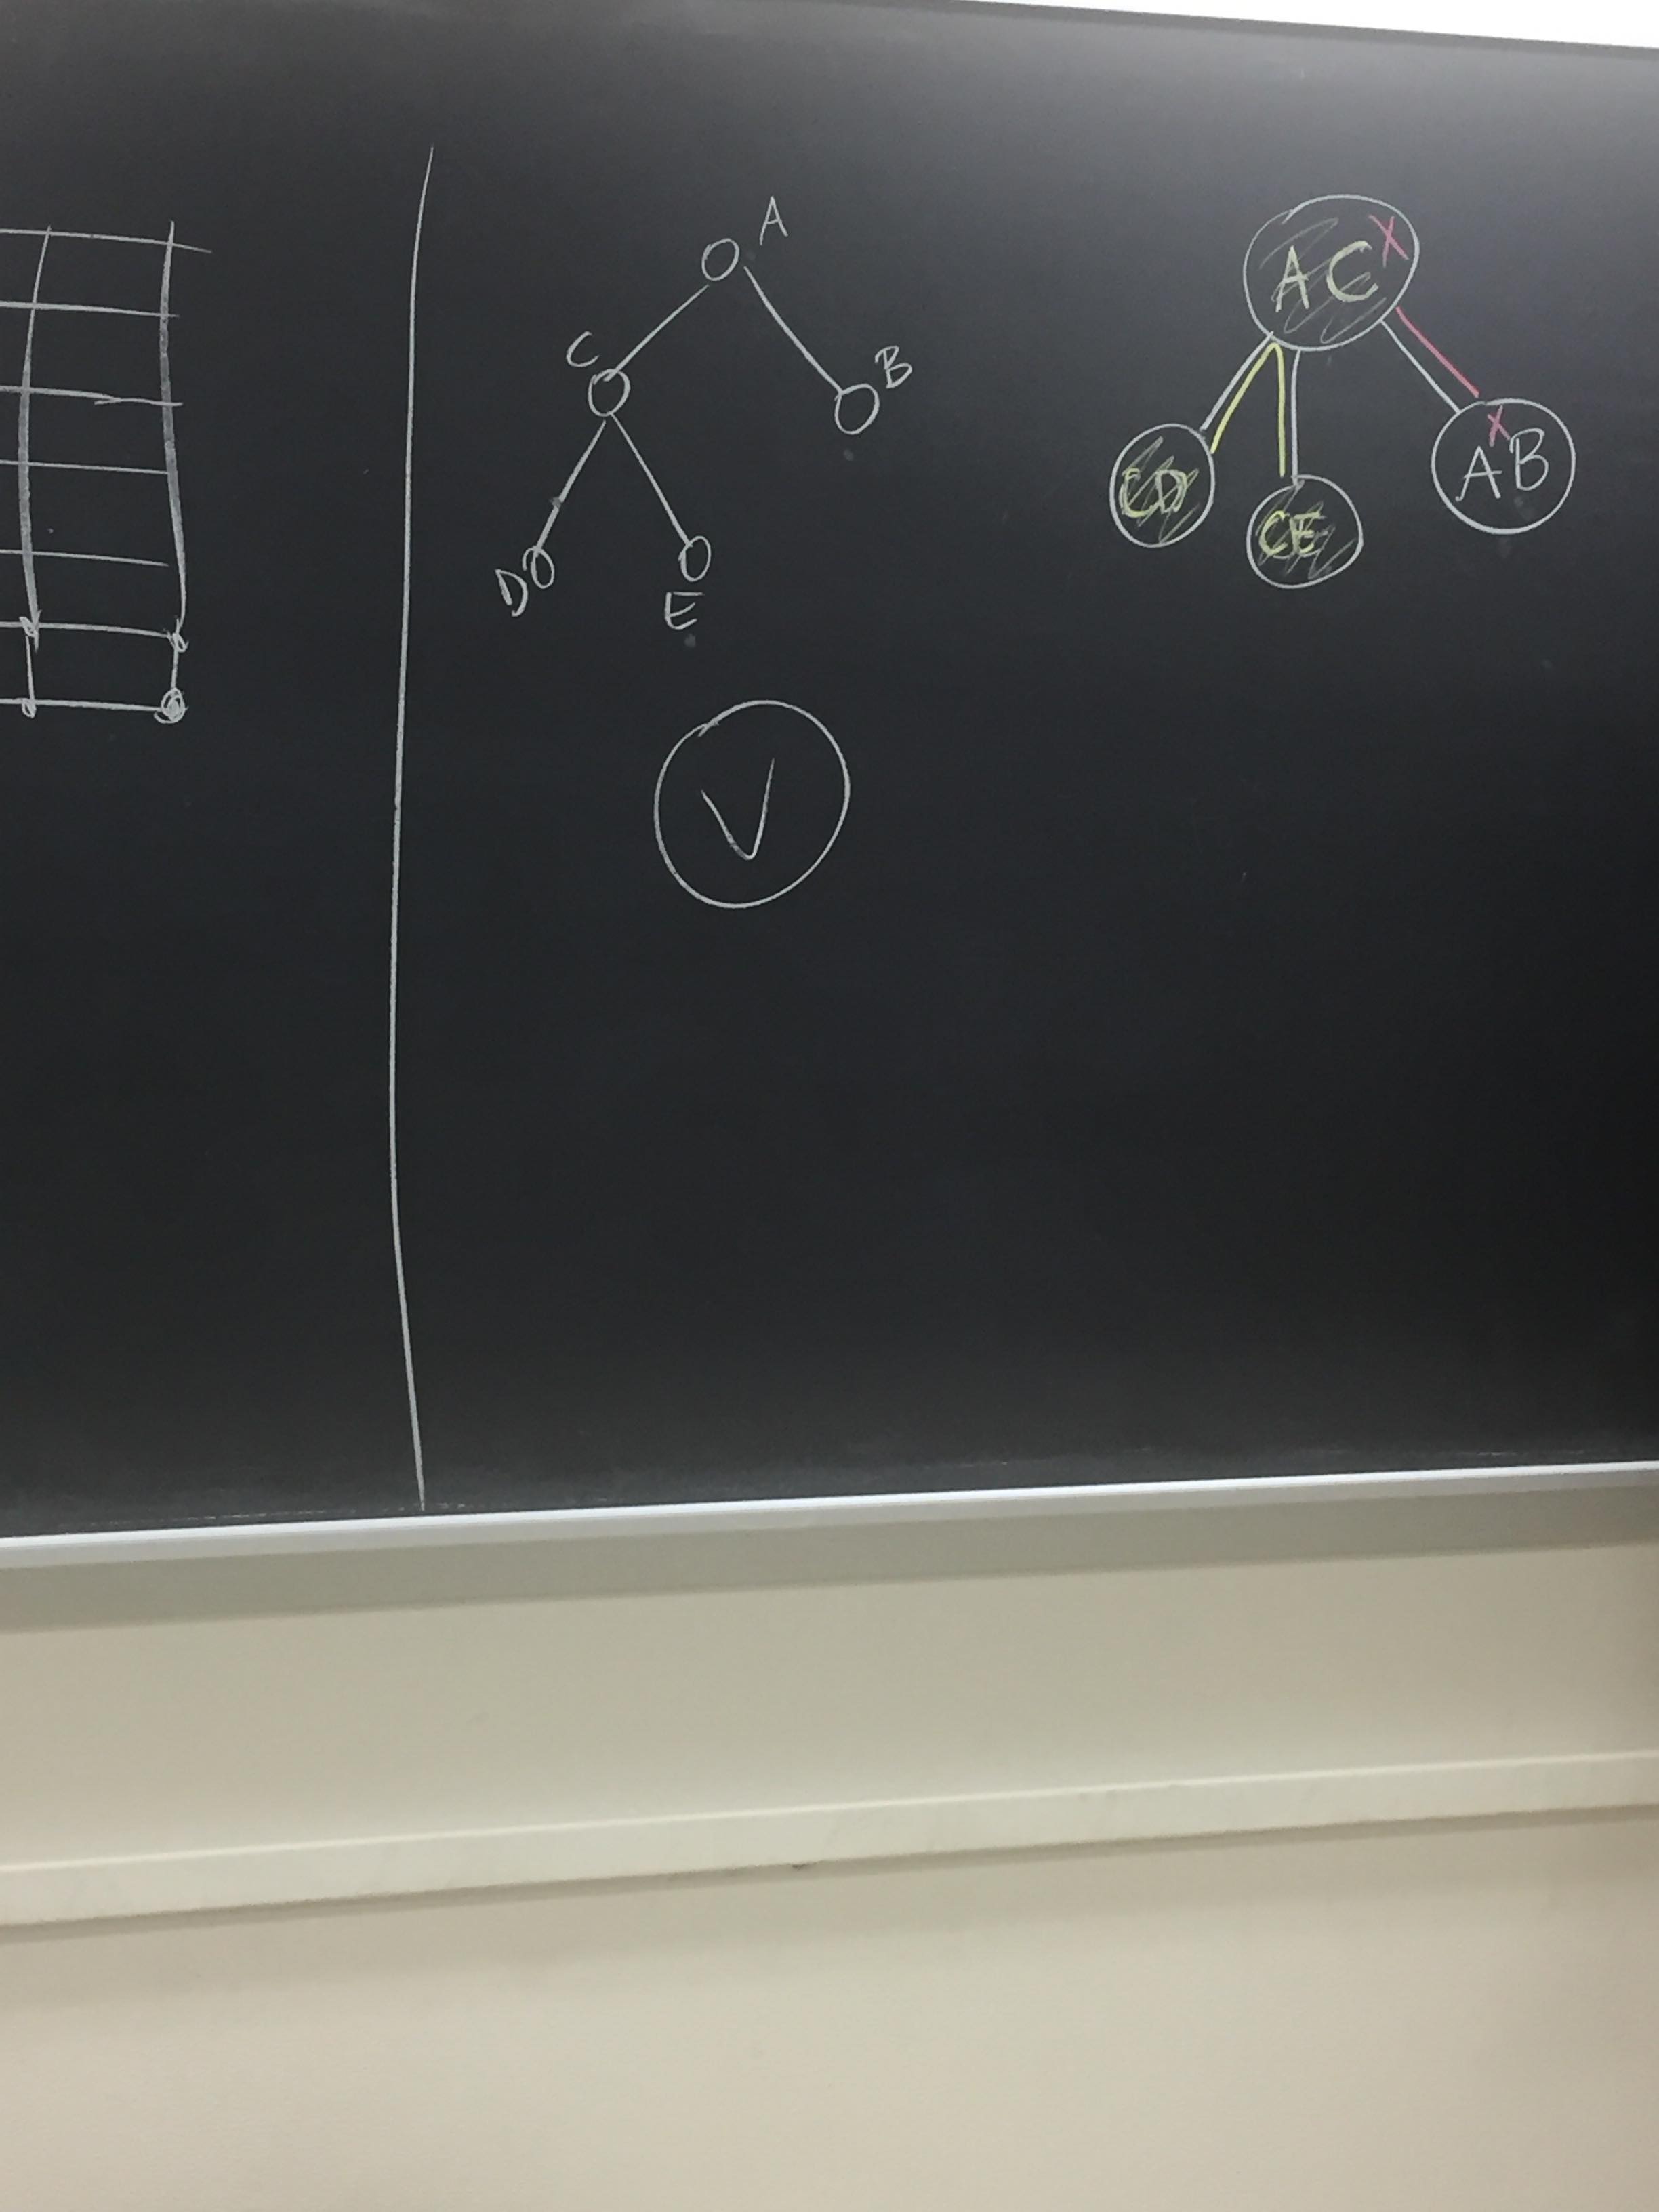 A
C
B
D
E
V
A C X
CD
CE
X
AB